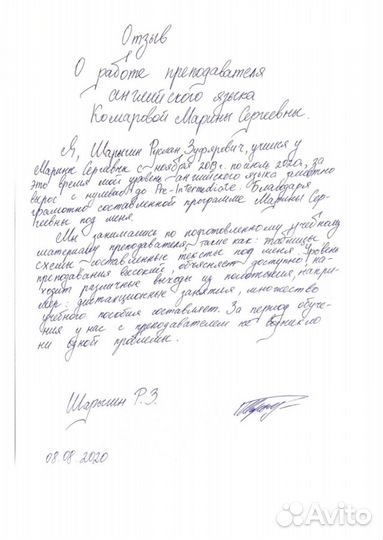 Отзыв
О работе преподавателя
английского языка
Комаровой Марины Сергеевны.
Я, Шарыгин Руслан Зуфарович, учился у
Марины Сергеевны с ноября 2019 г. по июль 2020, за
это время мой уровень английского языка заметно
вырос с нулевого до Pre-Intermediate. Благодаря
грамотно составленной программе Марины Сер-
геевны под меня.
Мы занимались по подготовленному учебному
материалу преподавателя, такие как: таблицы
схемы составленные тексты под меня. Уровень
преподавания высокий, объясняет доступно, на-
ходит различные выходы из положения, напри-
мер: дистанционные занятия, множество
учебного пособия составляет. За период обуче-
ния у нас с преподавателем не возникло
ни одной проблемы.
Шарыгин Р.З.
08.08.2020
Avito